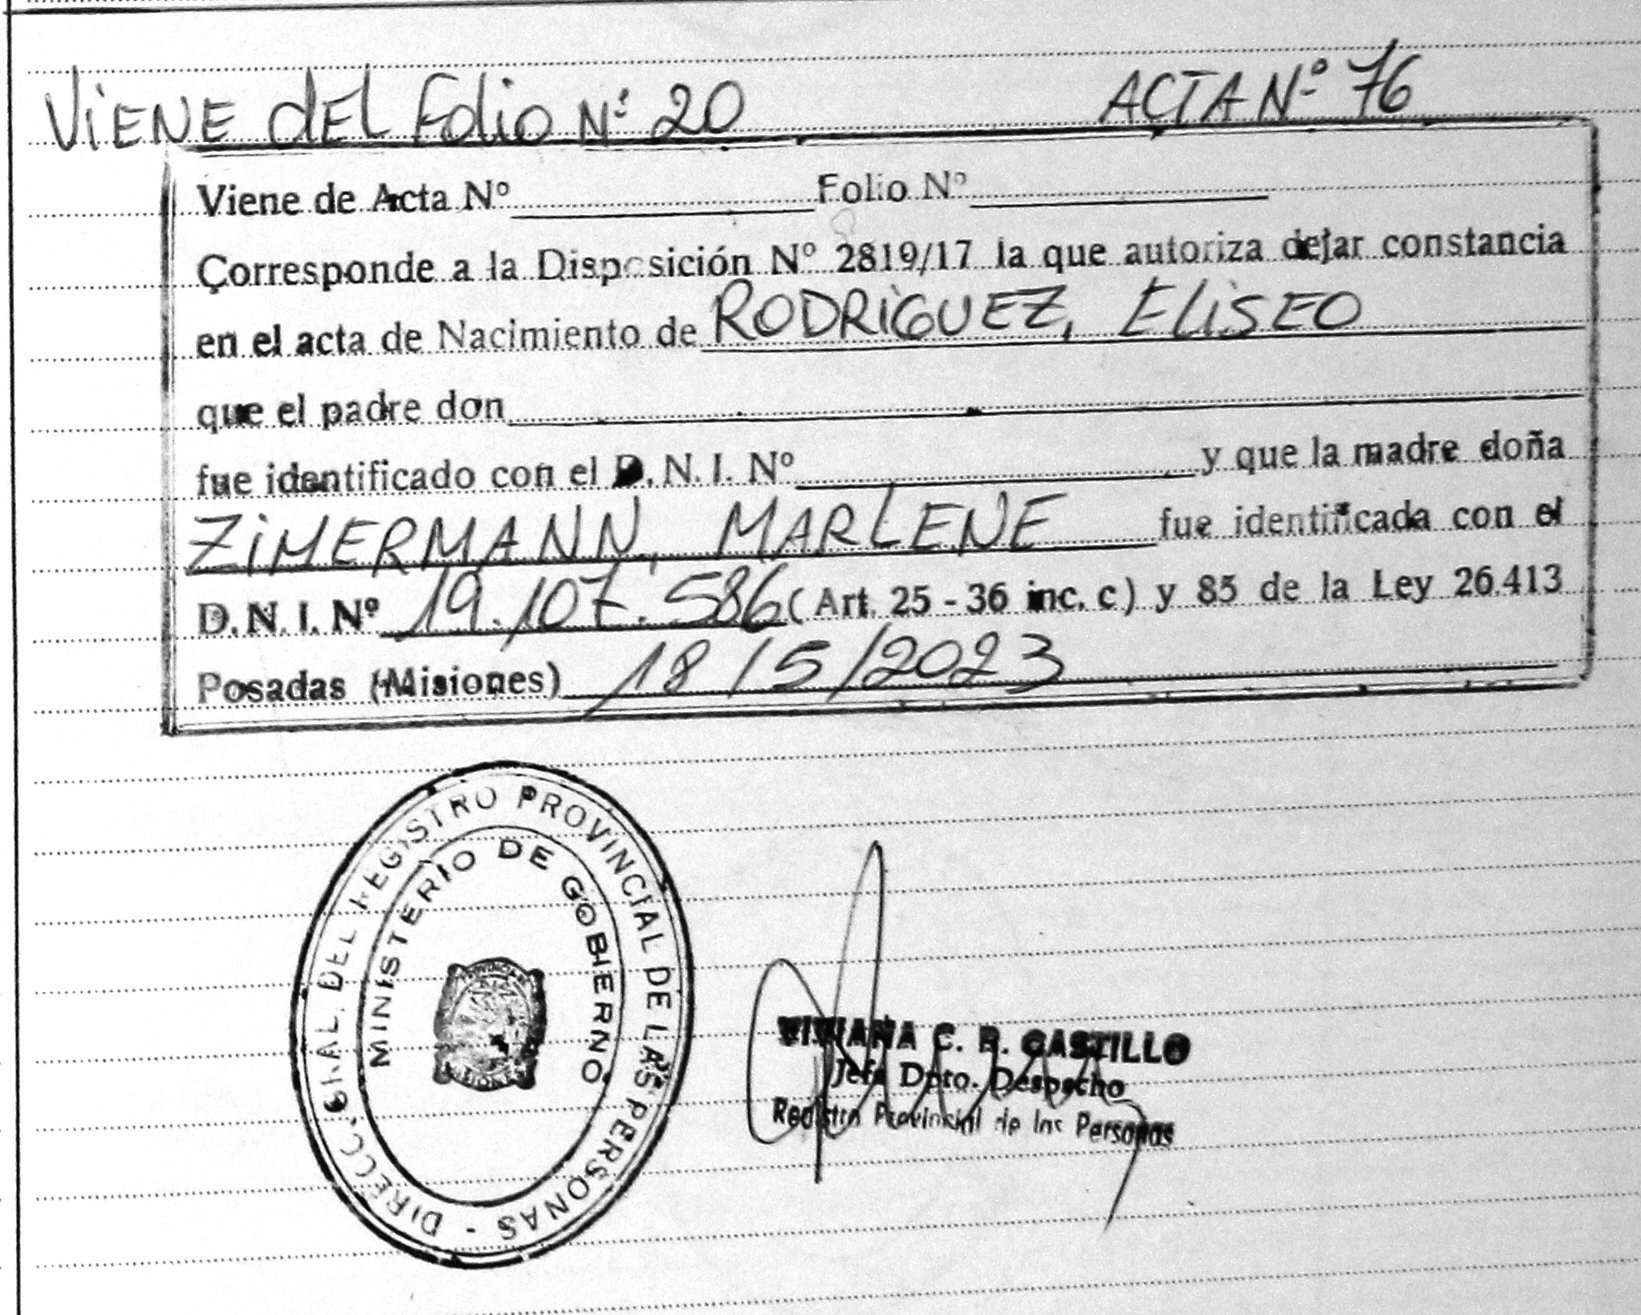 ViENE dEL Folio Nº 20 ACTA Nº 76
Viene de Acta Nº Folio Nº
Corresponde a la Disposición Nº 2819/17 la que autoriza dejar constancia
en el acta de Nacimiento de RODRiGUEZ, ELiSEO
que el padre don
fue identificado con el D.N.I. Nº y que la madre doña
ZiMERMANN, MARLENE fue identificada con el
D.N.I. Nº 19.107.586 (Art. 25 - 36 inc. c) y 85 de la Ley 26.413
Posadas (Misiones) 18/5/2023
DIRECC. GRAL. DEL REGISTRO PROVINCIAL DE LAS PERSONAS -
MINISTERIO DE GOBIERNO
VIVIANA C. R. CASTILLO
Jefa Dpto. Despacho
Registro Provincial de las Personas